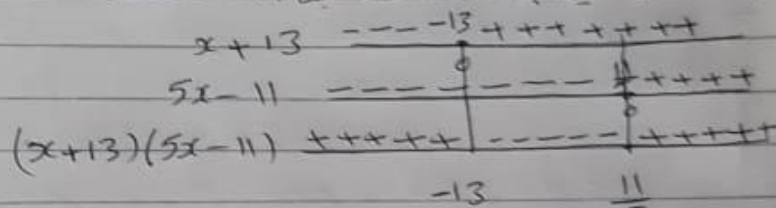 x+13 - - - - -13 + + + + + + +
5x-11 - - - - - - - - 11 + + + +
(x+13)(5x-11) + + + + + - - - - - - + + + + +
-13 11